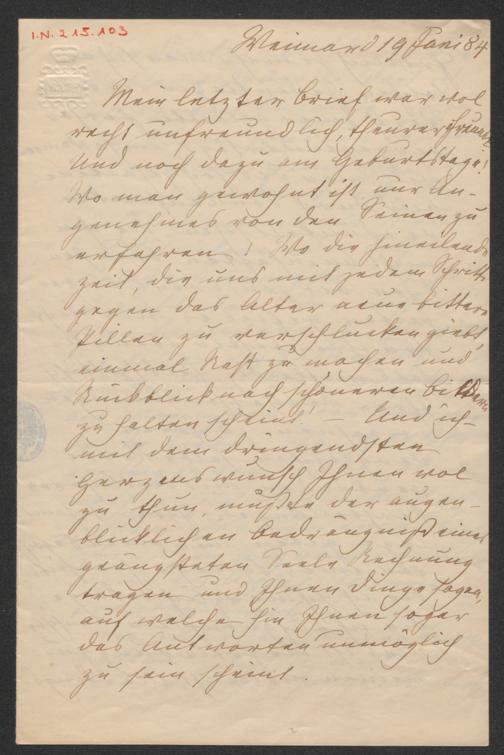 I.N. 215.103
Weimar d 19 Juni 84
Mein letzter Brief war wol
recht unfreundlich, theurer Freund.
Und noch dazu am Geburtstage!
Wo man gewohnt ist nur An-
genehmes von den Seinen zu
erfahren! Wo die hineilende
Zeit, die uns mit jedem Schritt
gegen das Alter neue bittere
Pillen zu verschlucken giebt,
einmal Rast zu machen und
Rückblick nach schöneren Bildern
zu halten scheint! — Und ich
mit dem dringendsten
Herzenswunsch Ihnen wol
zu thun, mußte der augen-
blicklichen Bedrängniß einer
geängsteten Seele Rechnung
tragen und Ihnen Dinge sagen,
auf welche hin Ihnen sogar
das Antworten unmöglich
zu sein scheint.